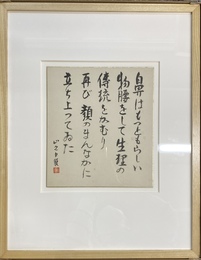 鼻はもっともらしい
物腰をして生理の
傳統をかむり
再び顔のまんなかに
立ち上つてゐた